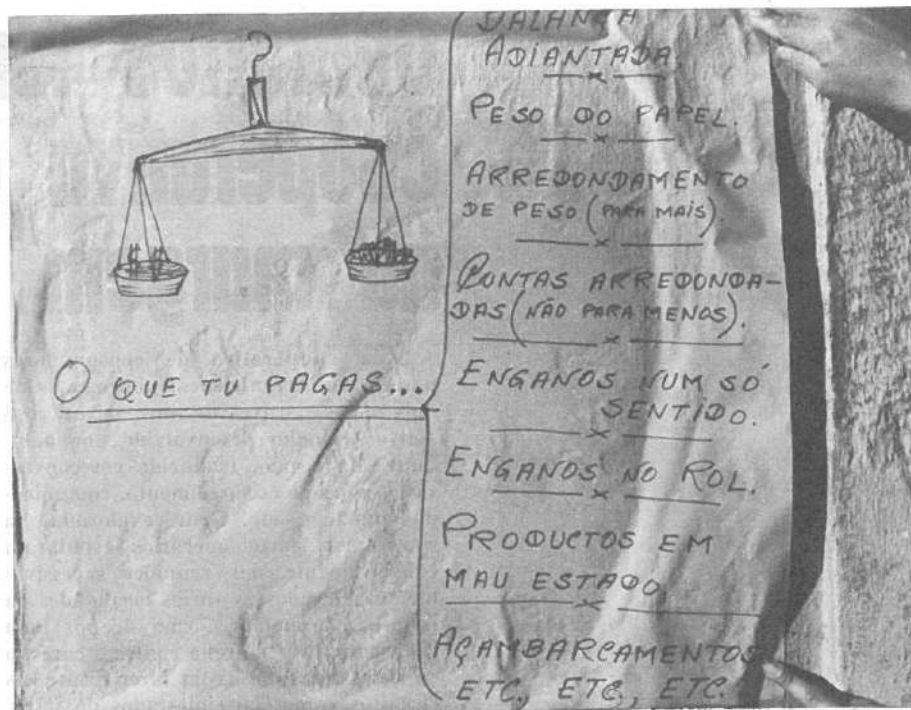 BALANÇA
ADIANTADA.
PESO DO PAPEL.
ARREDONDAMENTO
DE PESO (PARA MAIS).
CONTAS ARREDONDA-
DAS (NÃO PARA MENOS).
O QUE TU PAGAS...
ENGANOS NUM SÓ
SENTIDO.
ENGANOS NO ROL.
PRODUCTOS EM
MAU ESTADO.
AÇAMBARCAMENTOS
ETC., ETC., ETC.